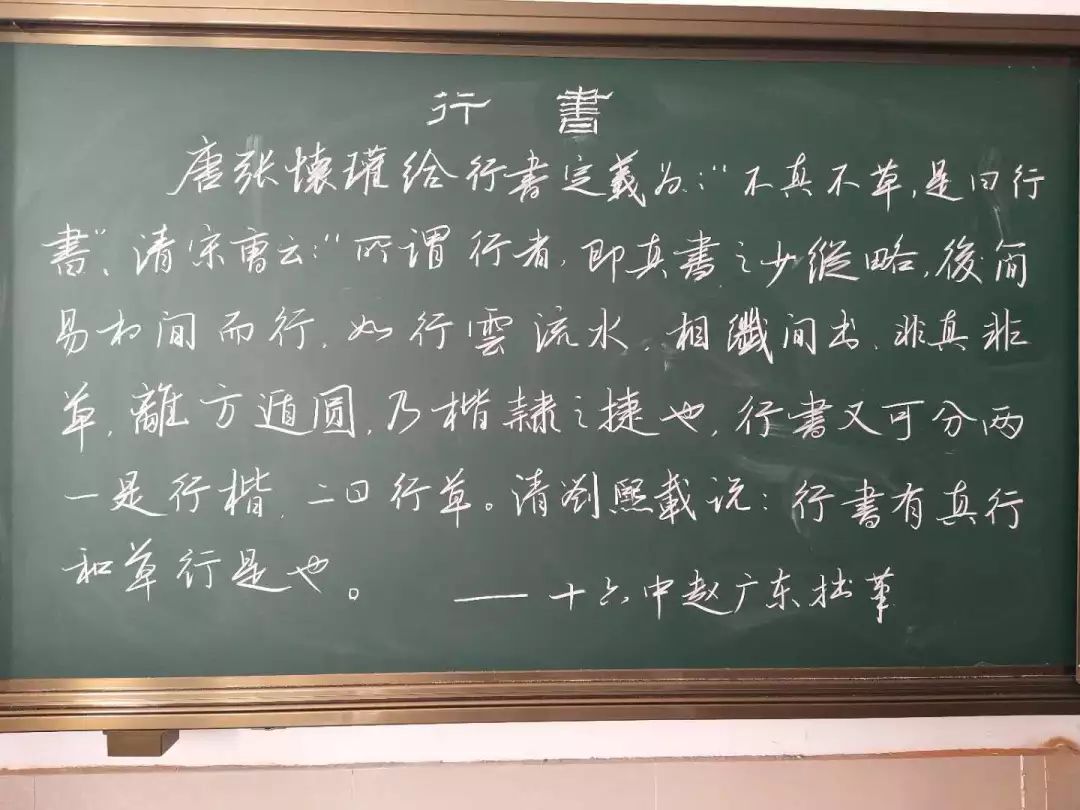 行 書
唐张懐瓘给行書定義为:"不真不草,是曰行
書"、清宋曹云:"所谓行者,即真書之少縱略,後简
易相间而行,如行雲流水,相纖间出,非真非
草,離方遁圆,乃楷隸之捷也,行書又可分两
一是行楷,二曰行草。清刘熙載说:行書有真行
和草行是也。
——十六中赵广东拙筆